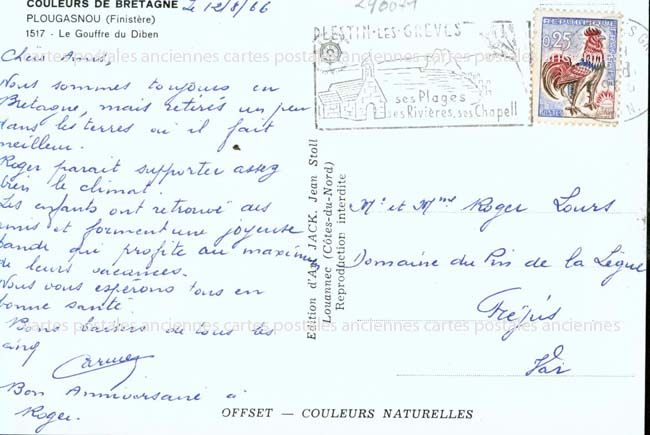 COULEURS DE BRETAGNE
PLOUGASNOU (Finistère)
1517 - Le Gouffre du Diben
le 12/8/66
Chers Amis,
Nous sommes toujours en
Bretagne, mais retirés un peu
dans les terres où il fait
meilleur.
Roger parait supporter assez
bien le climat.
Les enfants ont retrouvé des
amis et forment une joyeuse
bande qui profite au maximum
de leurs vacances.
Nous vous espérons tous en
bonne santé
Bons baisers de tous les
cinq
Bon Anniversaire à
Roger.
Edition d'Art JACK, Jean Stoll
Louannec (Côtes-du-Nord)
Reproduction interdite
240071
PLESTIN-LES-GRÈVES
ses Plages
ses Rivières, ses Chapell
REPUBLIQUE
0,25
POSTES
Mr et Mme Roger Lours
Domaine du Pin de la Lègue
Fréjus
Var
OFFSET — COULEURS NATURELLES
cartes postales anciennes cartes postales anciennes cartes postales anciennes
cartes postales anciennes cartes postales anciennes cartes postales anciennes